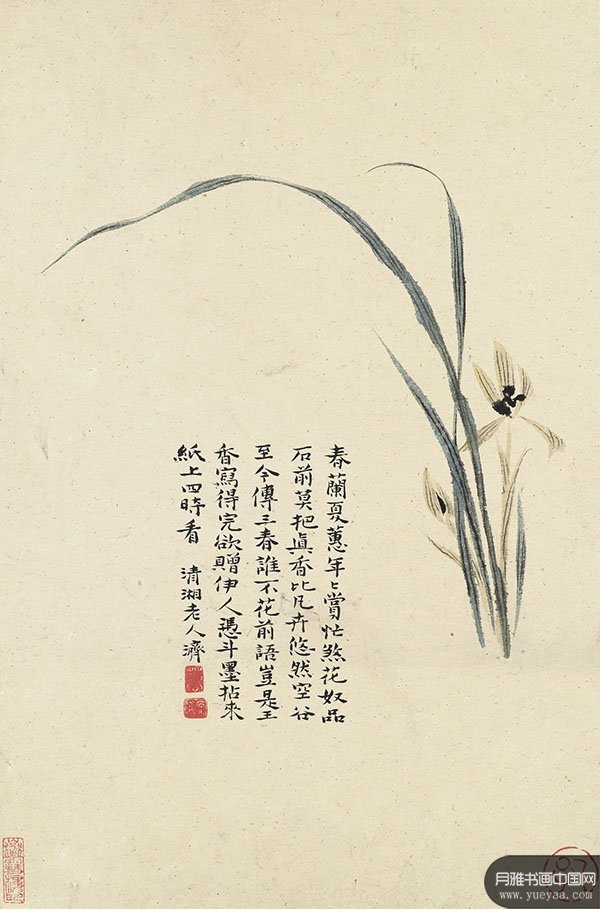 春蘭夏蕙年〻賞忙煞花奴品
石前莫把眞香比凡卉悠然空谷
至今傳三春誰不花前語豈是王
香寫得完欲贈伊人憑斗墨拈來
紙上四時看
清湘老人濟
月雅书画中国网
www.yueyaa.com